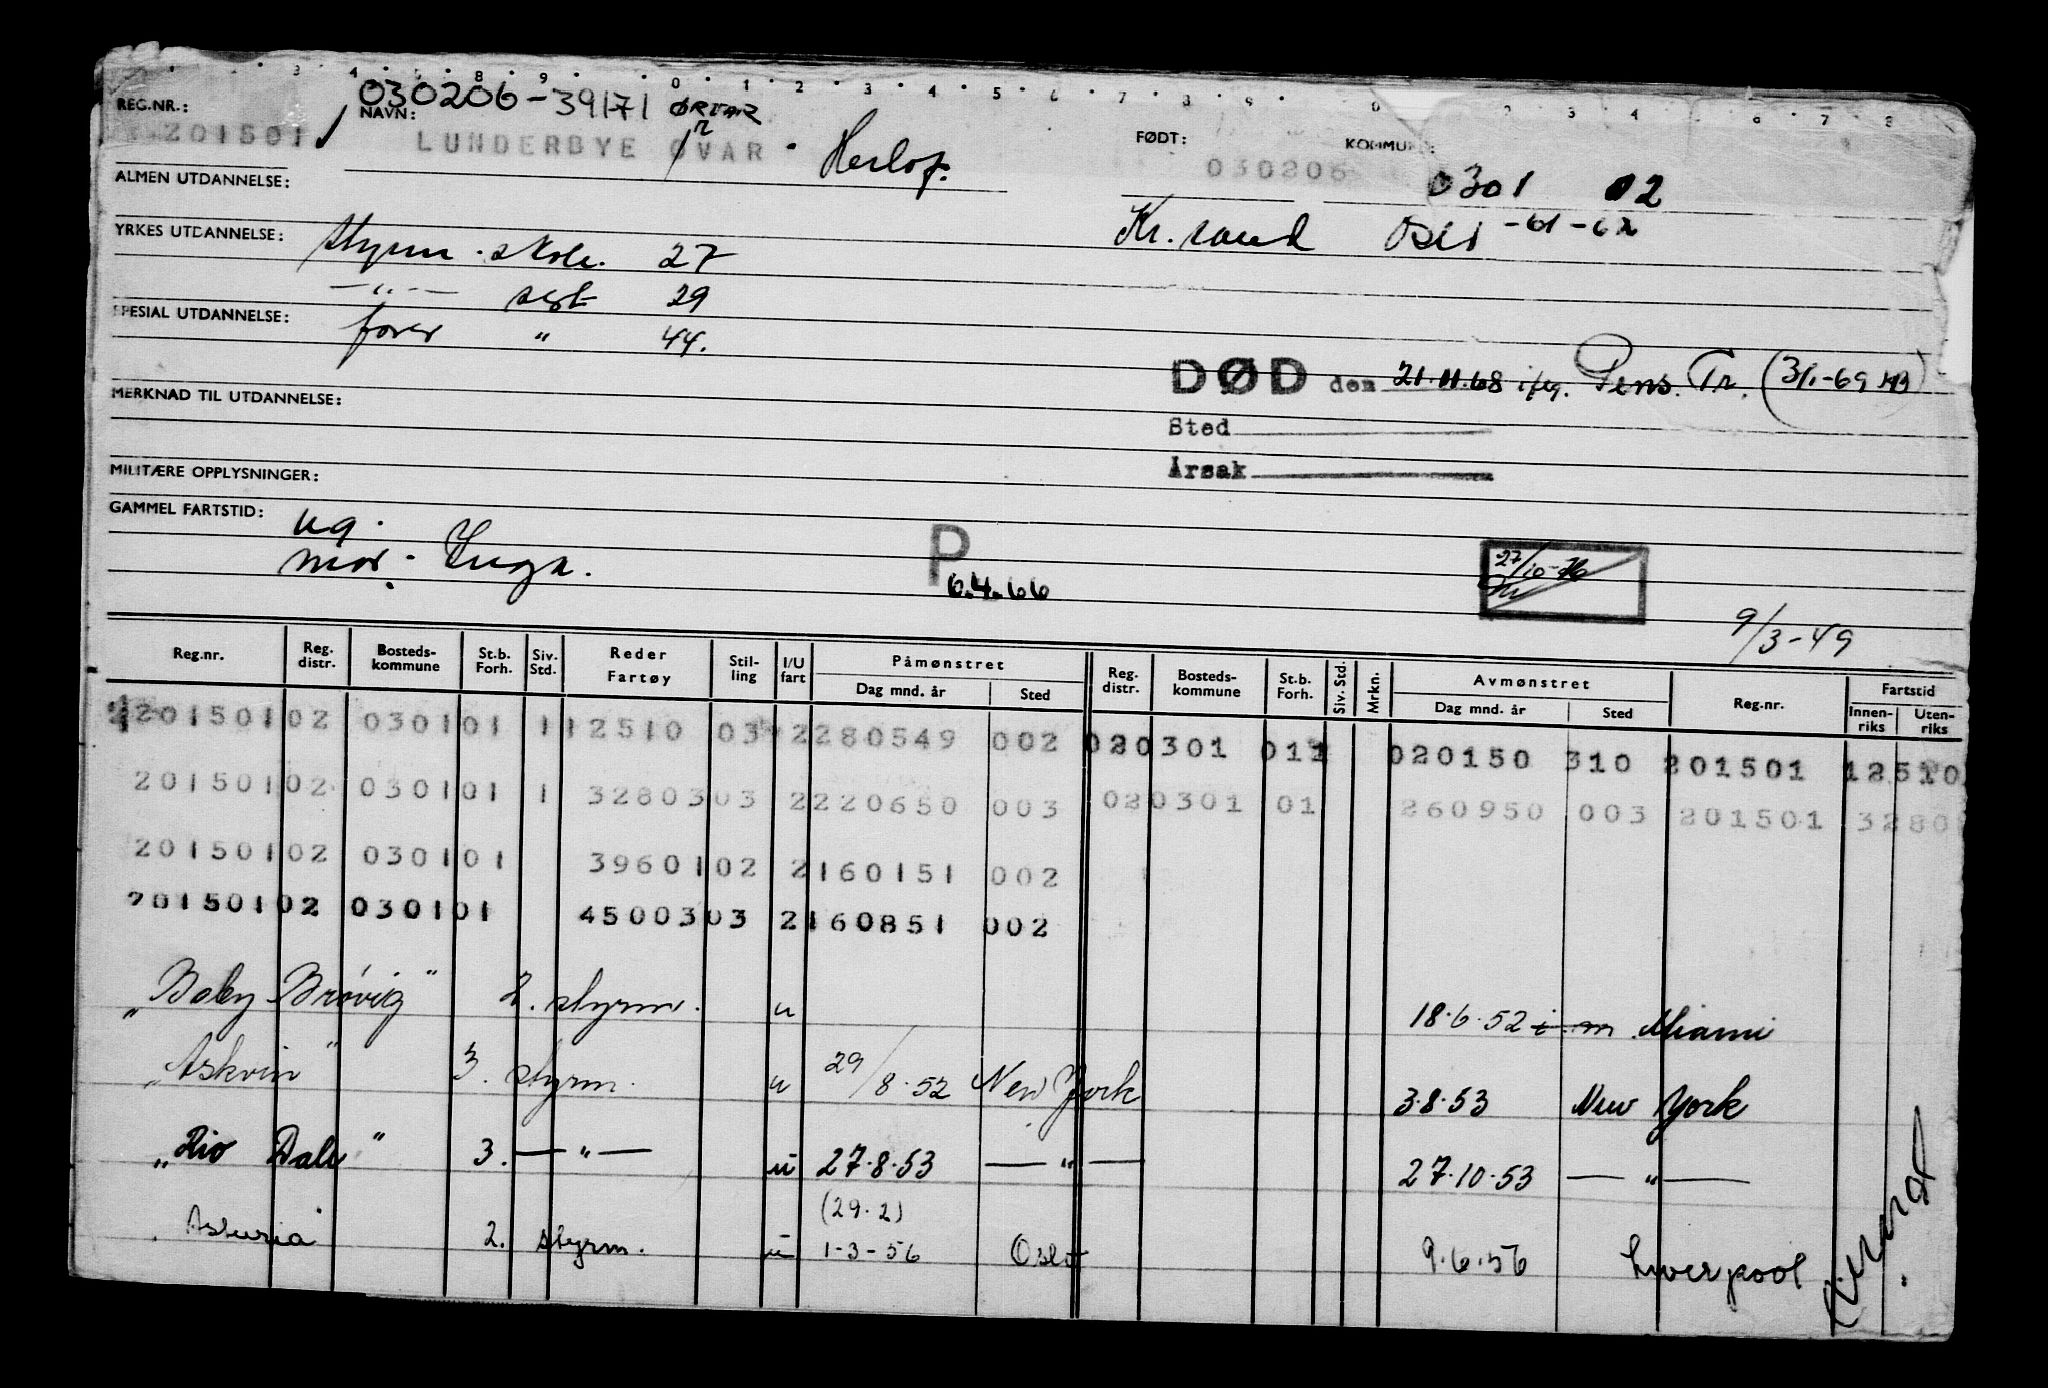 030206-39171 ØRVAR
REG.NR.: NAVN: FØDT: KOMMUNE:
201501 LUNDERBYE ØVAR r Herlof. 030206 0301 02
ALMEN UTDANNELSE: Kr.sand Oslo -61-62
YRKES UTDANNELSE: styrm. skole. 27
—"— sert 29
SPESIAL UTDANNELSE: fører " 44.
DØD den 21.11.68 ifg. Pens. Tr. (3/1-69
MERKNAD TIL UTDANNELSE:
Sted
Årsak
MILITÆRE OPPLYSNINGER:
GAMMEL FARTSTID: ug.
mor: Inga.
P 6.4.66
27/10-76
9/3-49
Reg.nr. Reg. distr. Bosteds-kommune St.b. Forh. Siv. Std. Reder Fartøy Stil-ling I/U fart Påmønstret Dag mnd. år Sted Reg. distr. Bosteds-kommune St.b. Forh. Siv. Std. Mrkn. Avmønstret Dag mnd. år Sted Reg.nr. Fartstid Innen-riks Uten-riks
20150102 030101 1 12510 03 2280549 002 020301 011 020150 310 201501 12510
20150102 030101 1 3280303 2220650 003 020301 01 260950 003 201501 3280
20150102 030101 3960102 2160151 002
20150102 030101 4500303 2160851 002
"Baby Brøvig" 2. styrm. u 18.6.52 i.m. Miami
"Askvin" 3. styrm. u 29/8.52 New York 3.8.53 New York
"Rio Dale" 3. —"— u 27.8.53 —"— 27.10.53 —"—
(29.2)
"Asturia" 2. styrm. u 1-3-56 Oslo 9.6.56 Liverpool